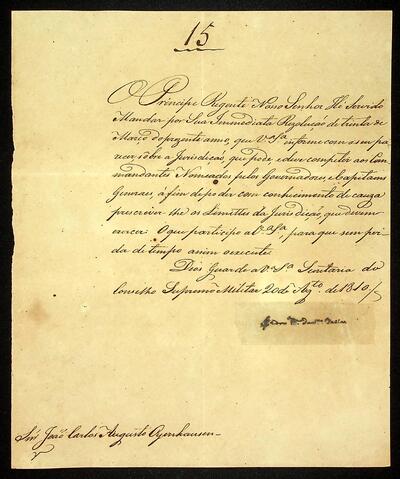 15
O Principe Regente Nosso Senhor He Servido
Mandar por Sua Immediata Rezolução de trinta de
Março do prezente anno, que V.ª S.ª informe com o seu pa-
recer, sôbre a Jurisdicção, que póde, e deve competir aos Com-
mandantes Nomeados pelos Governadores, e Capitaens
Generaes, á fim de poder com conhecimento de cauza
prescrever-lhe os Limittes da Jurisdicção, que devem
exercer. O que participo a V.ª S.ª, para que sem per-
da de tempo assim o execute.
Deos Guarde a V.ª S.ª Secretaria do
Conselho Supremo Militar 20 de Ag.to de 1810
Snr João Carlos Augusto Oyenhausen